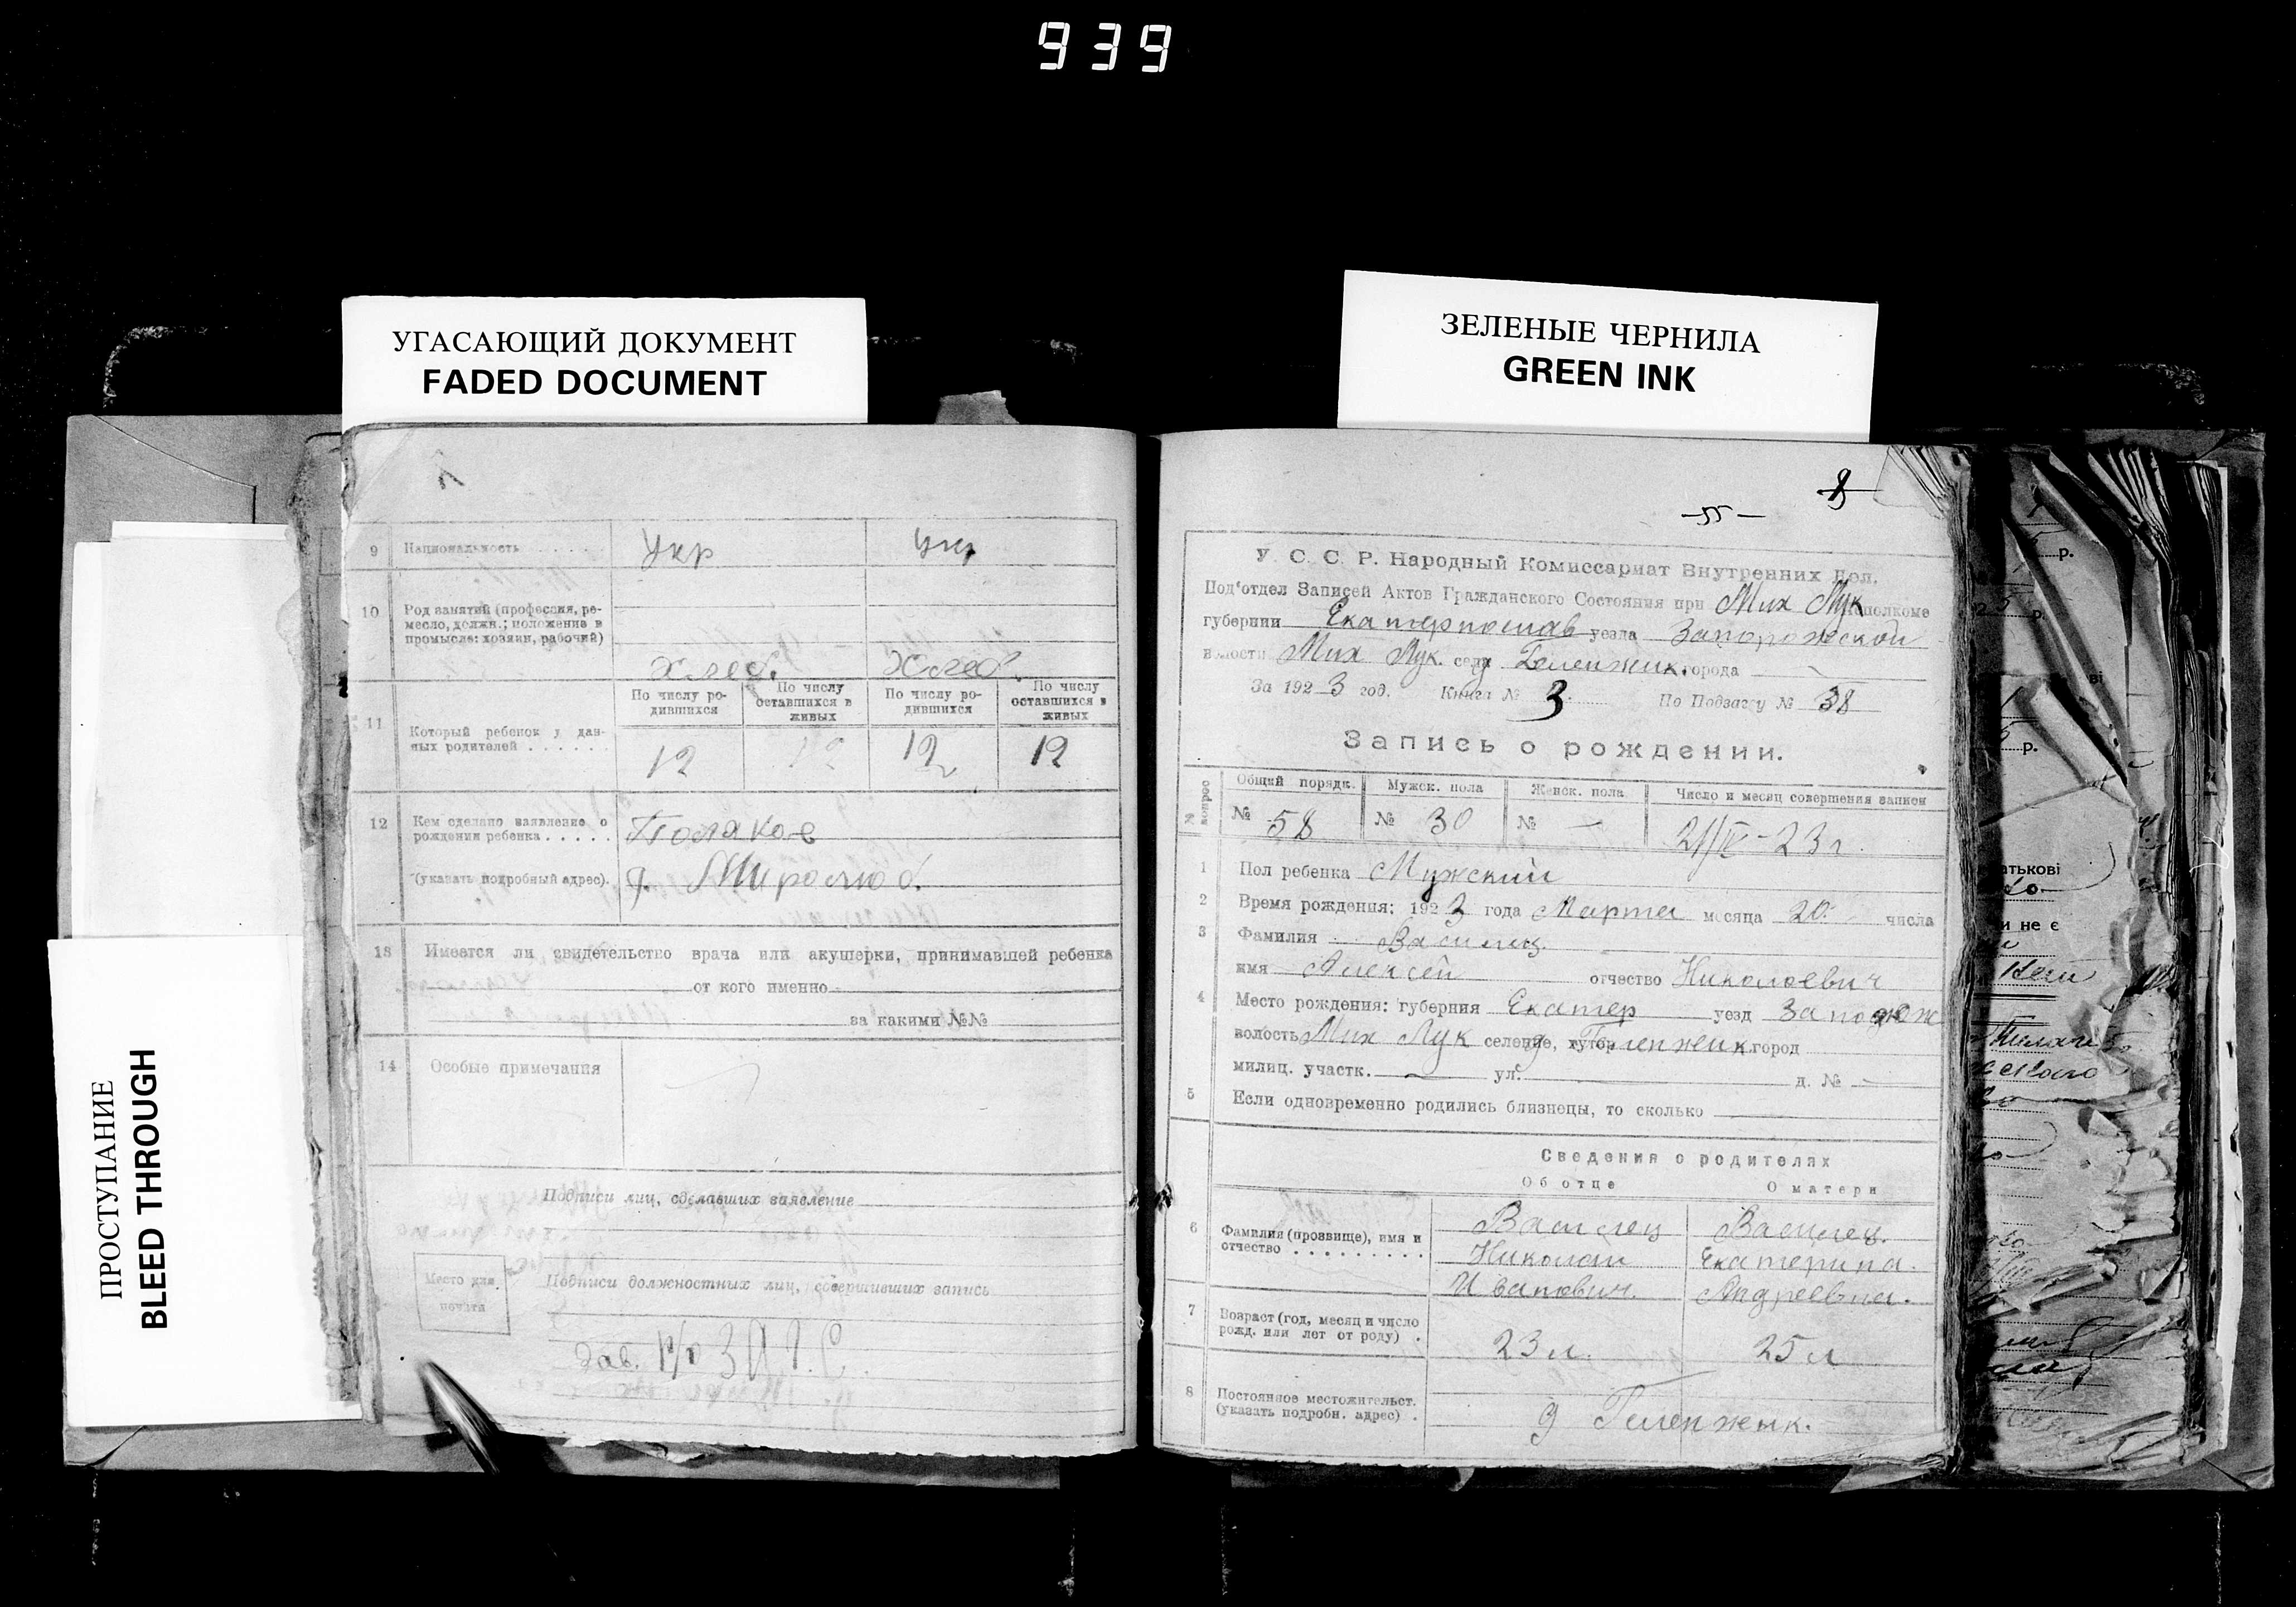 939
УГАСАЮЩИЙ ДОКУМЕНТ
FADED DOCUMENT
ЗЕЛЕНЫЕ ЧЕРНИЛА
GREEN INK
ПРОСТУПАНИЕ
BLEED THROUGH
9 Национальность . . . . . Укр Укр
10 Род занятий (профессия, ре-
месло, должн.; положение в
промысле: хозяин, рабочий)
хлеб. хлеб.
По числу ро-
дившихся
По числу
оставшихся в
живых
По числу ро-
дившихся
По числу
оставшихся в
живых
11 Который ребенок у дан-
ных родителей . . . . . .
12 12 12 12
12 Кем сделано заявление о
рождении ребенка . . . . . Поляков
(указать подробный адрес). д. Миролюб.
13 Имеется ли свидетельство врача или акушерки, принимавшей ребенка
от кого именно
за какими №№
14 Особые примечания
Подписи лиц, сделавших заявление
Место для
печати
Подписи должностных лиц, совершивших запись
Зав. п/о ЗАГС
— 55 — 8
У. С. С. Р. Народный Комиссариат Внутренних Дел.
Под'отдел Записей Актов Гражданского Состояния при Мих Лук исполкоме
губернии Екатериослав уезда Запорожской
волости Мих Лук. села д города
За 1923 год. Книга № 3. По Подзагсу № 38
Запись о рождении.
№ вопрос
Общий порядк. Мужск. пола Женск. пола Число и месяц совершения записи
№ 58 № 30 № — 21/IV - 23 г.
1 Пол ребенка Мужский
2 Время рождения: 1923 года Марта месяца 20. числа
3 Фамилия Василец
имя Алексей отчество Николоевич
4 Место рождения: губерния Екатер уезд Запорож
волость Мих Лук селение, хутор д Геленжик город
милиц. участк. — ул. д. № —
5 Если одновременно родились близнецы, то сколько
Сведения о родителях
Об отце О матери
6 Фамилия (прозвище), имя и
отчество . . . . . . . . .
Василец Василец.
Николай Екатерина.
Иванович. Андреевна.
7 Возраст (год, месяц и число
рожд. или лет от роду) . 23 л. 25 л
8 Постоянное местожительст.
(указать подробн. адрес) . д Геленжик.